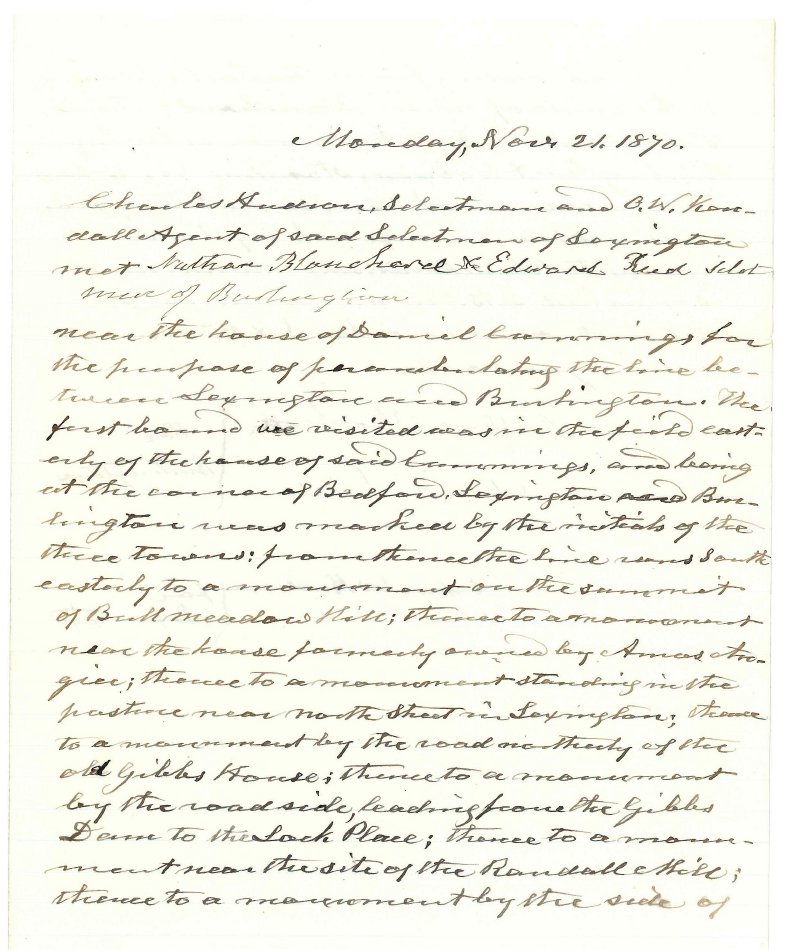 Monday, Nov. 21. 1870.
Charles Hudson, Selectman and O. W. Ken-
dall Agent of said Selectmen of Lexington
met Nathan Blanchard & Edward Reed Select
men of Burlington
near the house of Daniel Cummings for
the purpose of perambulating the line be-
tween Lexington and Burlington. The
first bound we visited was in the field east-
erly of the house of said Cummings, and being
at the corner of Bedford, Lexington and Bur-
lington was marked by the initials of the
three towns: from thence the line runs South
easterly to a monument on the summit
of Bull meadow Hill; thence to a monument
near the house formerly owned by Amos An-
gier; thence to a monument standing in the
pasture near north Street in Lexington; thence
to a monument by the road northerly of the
old Gibbs House; thence to a monument
by the road side, leading from the Gibbs
Dam to the Lock Place; thence to a monu-
ment near the site of the Randall Mill;
thence to a monument by the side of